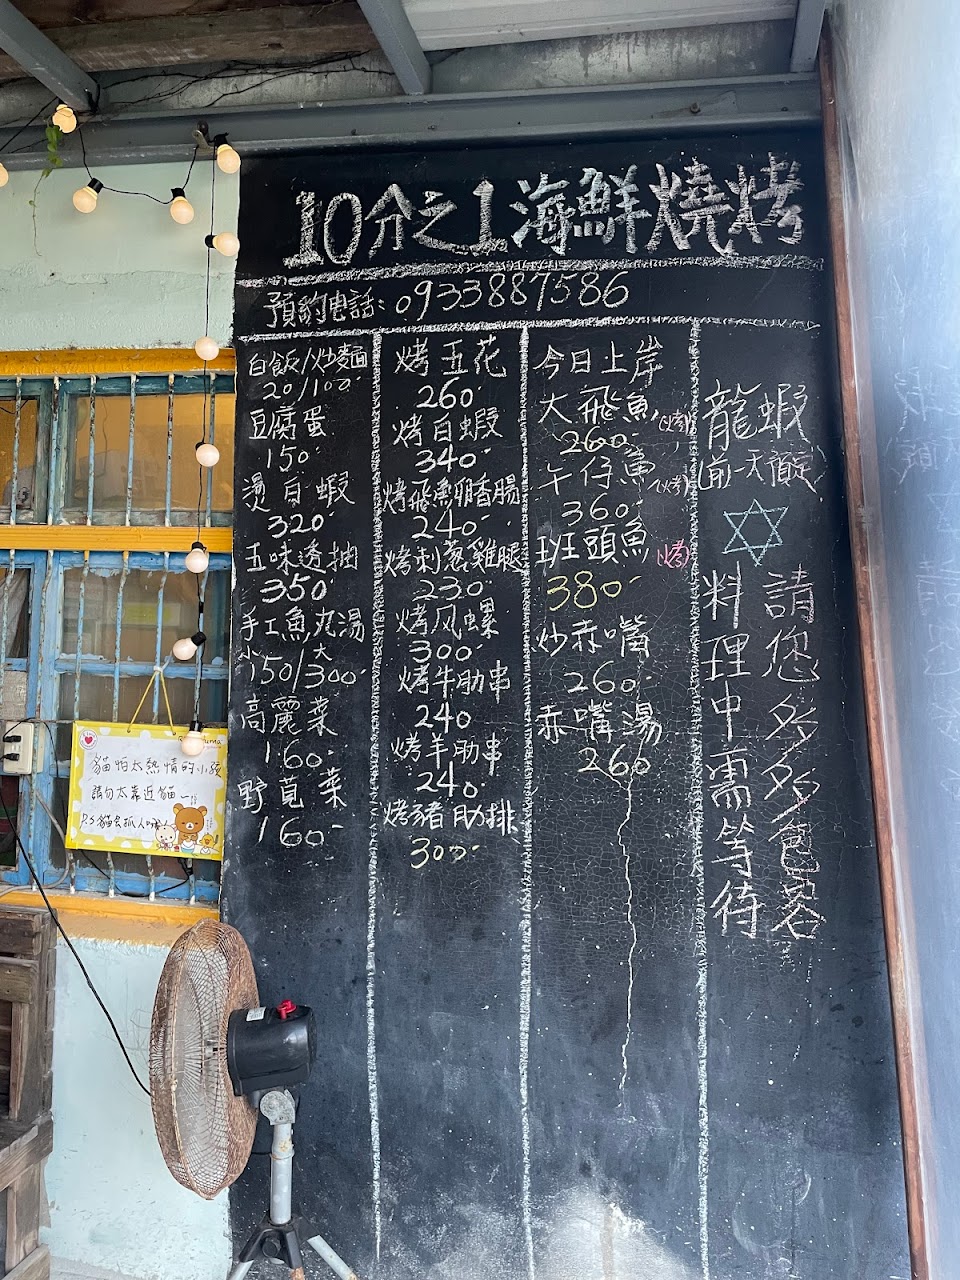 10分之1海鮮燒烤
預約電話:0933887586
白飯/炒麵
20/100
豆腐蛋
150
燙白蝦
320
五味透抽
350
手工魚丸湯
小 大
150/300
高麗菜
160
野莧菜
160
烤五花
260
烤白蝦
340
烤飛魚卵香腸
240
烤刺蔥雞腿
230
烤风螺
300
烤牛肋串
240
烤羊肋串
240
烤豬肋排
300
今日上岸
大飛魚(烤)
260
午仔魚(烤)
360
班頭魚(烤)
380
炒赤嘴
260
赤嘴湯
260
龍蝦
(前一天預定)
請您多多多包容
料理中需等待
貓怕太熱情的小孩
請勿太靠近貓
P.S貓會抓人哦!